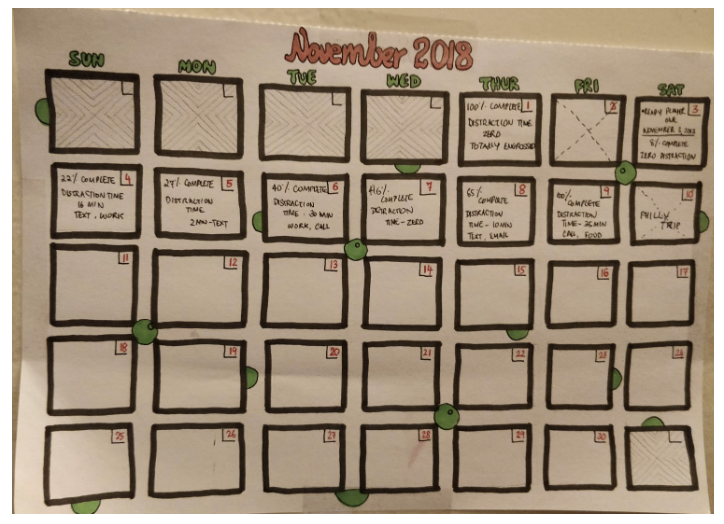 November 2018
SUN MON TUE WED THUR FRI SAT
1
100% COMPLETE
DISTRACTION TIME
ZERO
TOTALLY ENGROSSED
2
3
•READY PLAYER
ONE
NOVEMBER 3, 2018
8% COMPLETE
ZERO DISTRACTION
4
22% COMPLETE
DISTRACTION TIME
16 MIN
TEXT, WORK
5
27% COMPLETE
DISTRACTION
TIME
2 MIN-TEXT
6
40% COMPLETE
DISTRACTION
TIME - 30 MIN
WORK, CALL
7
COMPLETE
DISTRACTION
TIME-ZERO
8
55%
COMPLETE
DISTRACTION
TIME - 10 MIN
TEXT, EMAIL
9
COMPLETE
DISTRACTION
TIME-35 MIN
CALL, FOOD
10
PHILLY
TRIP
11
12
13
14
15
16
17
18
19
20
21
22
23
24
25
26
27
28
29
30